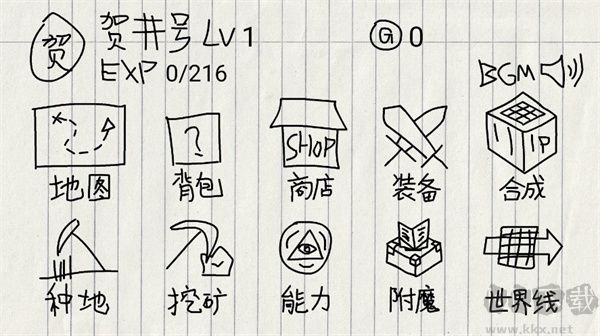 贺 贺井号 LV 1 G 0
EXP 0/216 BGM
? SHOP IP
地图 背包 商店 装备 合成
种地 挖矿 能力 附魔 世界线
www.kkx.net